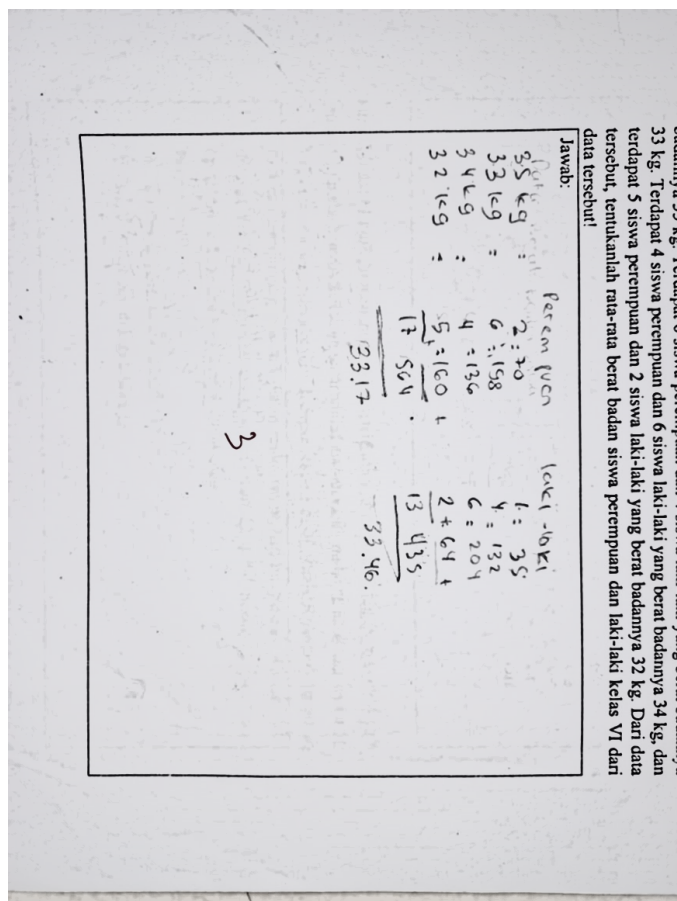 33 kg. Terdapat 4 siswa perempuan dan 6 siswa laki-laki yang berat badannya 34 kg, dan
terdapat 5 siswa perempuan dan 2 siswa laki-laki yang berat badannya 32 kg. Dari data
tersebut, tentukanlah rata-rata berat badan siswa perempuan dan laki-laki kelas VI dari
data tersebut!
Jawab:
Perempuan laki-laki
35 kg = 2 = 70 1 = 35
33 kg = 6 = 198 4 = 132
34 kg = 4 = 136 6 = 204
32 kg = 5 = 160 + 2 + 64 +
17 564 13 435
33.17 33.46
3